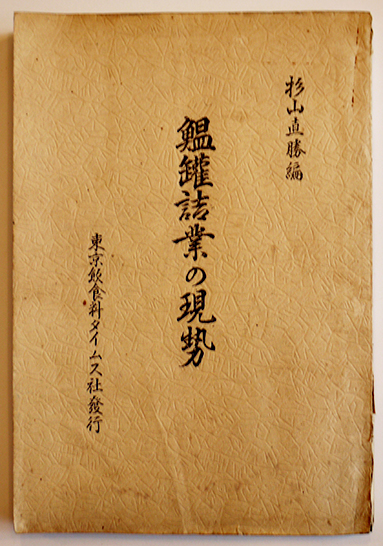 杉山直勝編
鰮罐詰業の現勢
東京飲食料タイムス社發行